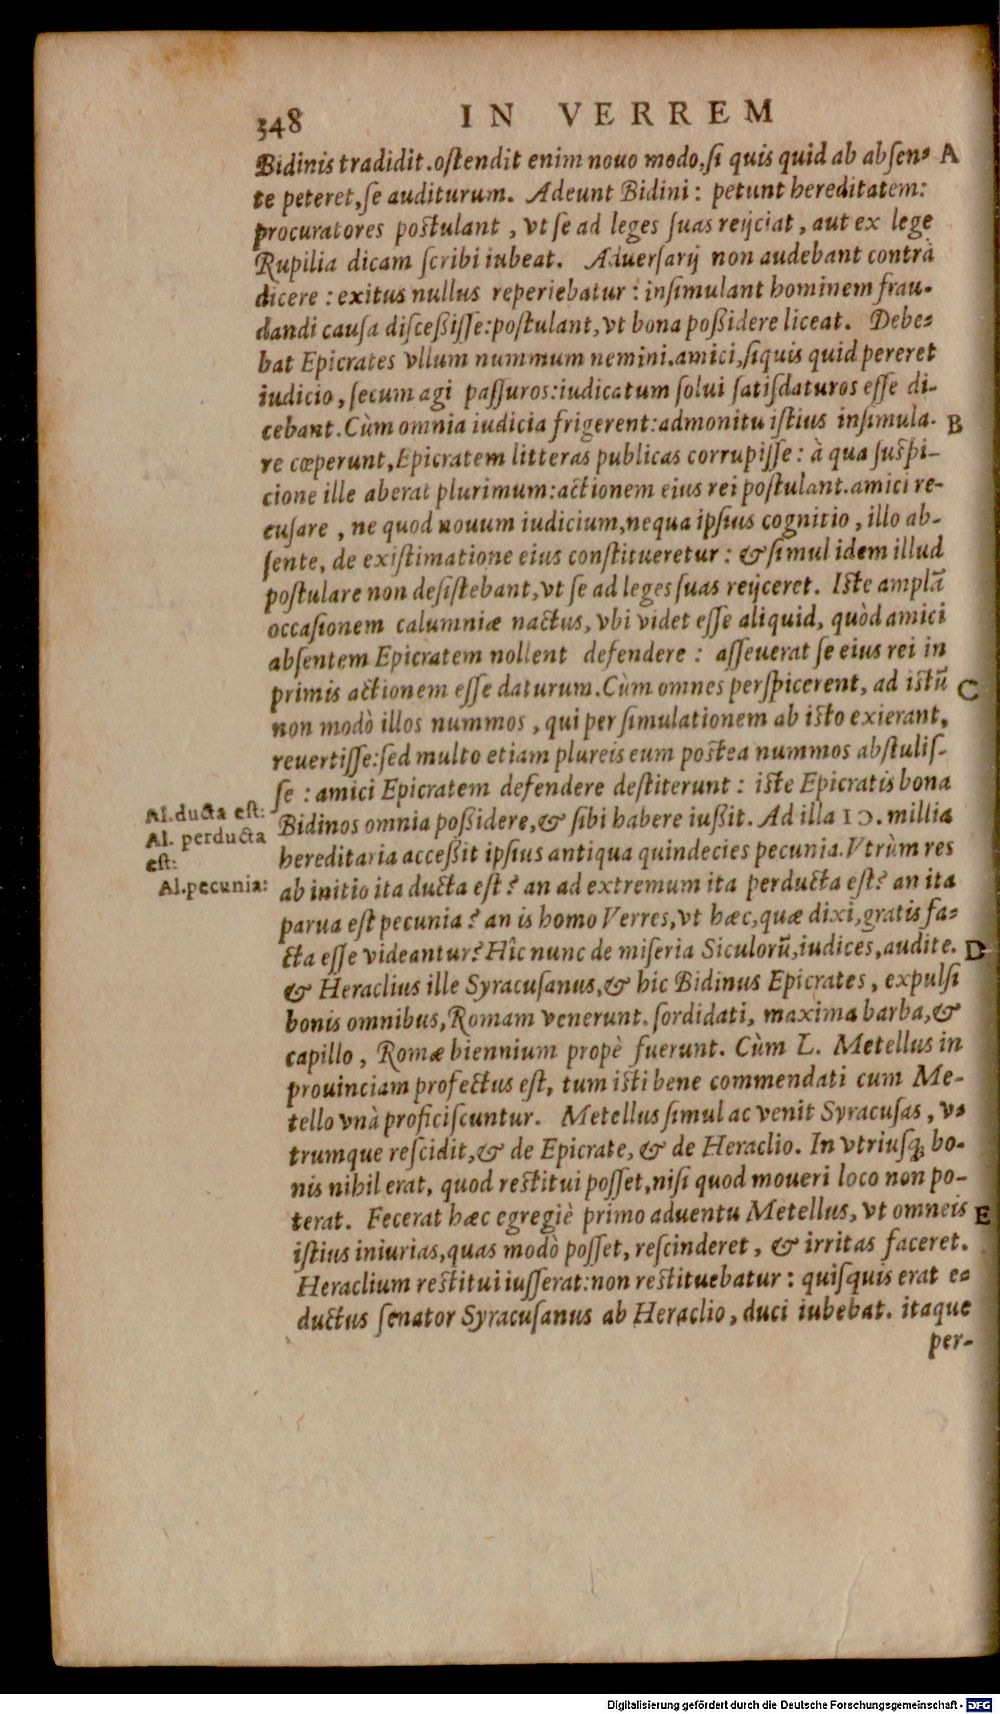 348 IN VERREM
Bidinis tradidit. ostendit enim nouo modo, si quis quid ab absen- A
te peteret, se auditurum. Adeunt Bidini: petunt hereditatem:
procuratores postulant, vt se ad leges suas reijciat, aut ex lege
Rupilia dicam scribi iubeat. Aduersarij non audebant contrà
dicere: exitus nullus reperiebatur: insimulant hominem frau-
dandi causa disceßisse: postulant, vt bona poßidere liceat. Debe-
bat Epicrates vllum nummum nemini. amici, siquis quid pereret
iudicio, secum agi passuros: iudicatum solui satisdaturos esse di-
cebant. Cùm omnia iudicia frigerent: admonitu istius insimula- B
re cœperunt, Epicratem litteras publicas corrupisse: à qua suspi-
cione ille aberat plurimum: actionem eius rei postulant. amici re-
cusare, ne quod nouum iudicium, nequa ipsius cognitio, illo ab-
sente, de existimatione eius constitueretur: & simul idem illud
postulare non desistebant, vt se ad leges suas reijceret. Iste amplā
occasionem calumniæ nactus, vbi videt esse aliquid, quòd amici
absentem Epicratem nollent defendere: asseuerat se eius rei in
primis actionem esse daturum. Cùm omnes perspicerent, ad istū C
non modò illos nummos, qui per simulationem ab isto exierant,
reuertisse: sed multo etiam plureis eum postea nummos abstulis-
se: amici Epicratem defendere destiterunt: iste Epicratis bona
Al. ducta est:
Bidinos omnia poßidere, & sibi habere iußit. Ad illa IↃ. millia
Al. perducta
est:
hereditaria acceßit ipsius antiqua quindecies pecunia. Vtrùm res
Al. pecunia:
ab initio ita ducta est? an ad extremum ita perducta est? an ita
parua est pecunia? an is homo Verres, vt hæc, quæ dixi, gratis fa-
cta esse videantur? Hîc nunc de miseria Siculorū, iudices, audite. D
& Heraclius ille Syracusanus, & hic Bidinus Epicrates, expulsi
bonis omnibus, Romam venerunt. sordidati, maxima barba, &
capillo, Romæ biennium propè fuerunt. Cùm L. Metellus in
prouinciam profectus est, tum isti bene commendati cum Me-
tello vnà proficiscuntur. Metellus simul ac venit Syracusas, v-
trumque rescidit, & de Epicrate, & de Heraclio. In vtriusq; bo-
nis nihil erat, quod restitui posset, nisi quod moueri loco non po-
terat. Fecerat hæc egregiè primo aduentu Metellus, vt omneis E
istius iniurias, quas modò posset, rescinderet, & irritas faceret.
Heraclium restitui iusserat: non restituebatur: quisquis erat e-
ductus senator Syracusanus ab Heraclio, duci iubebat. itaque
per-
Digitalisierung gefördert durch die Deutsche Forschungsgemeinschaft - DFG